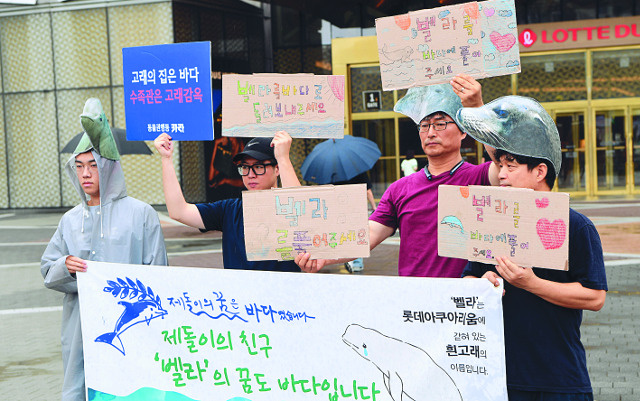 LOTTE DU
고래의 집은 바다
수족관은 고래감옥
동물권단체 카라
벨라를
바다에 풀어
주세요
벨라를 바다로
돌려보내주세요
벨라
를 풀어주세요
벨라를
바다에 풀어
주세요
제돌이의 꿈은 바다였습니다
제돌이의 친구
'벨라'의 꿈도 바다입니다
'벨라'는
롯데아쿠아리움에
갇혀 있는
흰고래의
이름입니다.